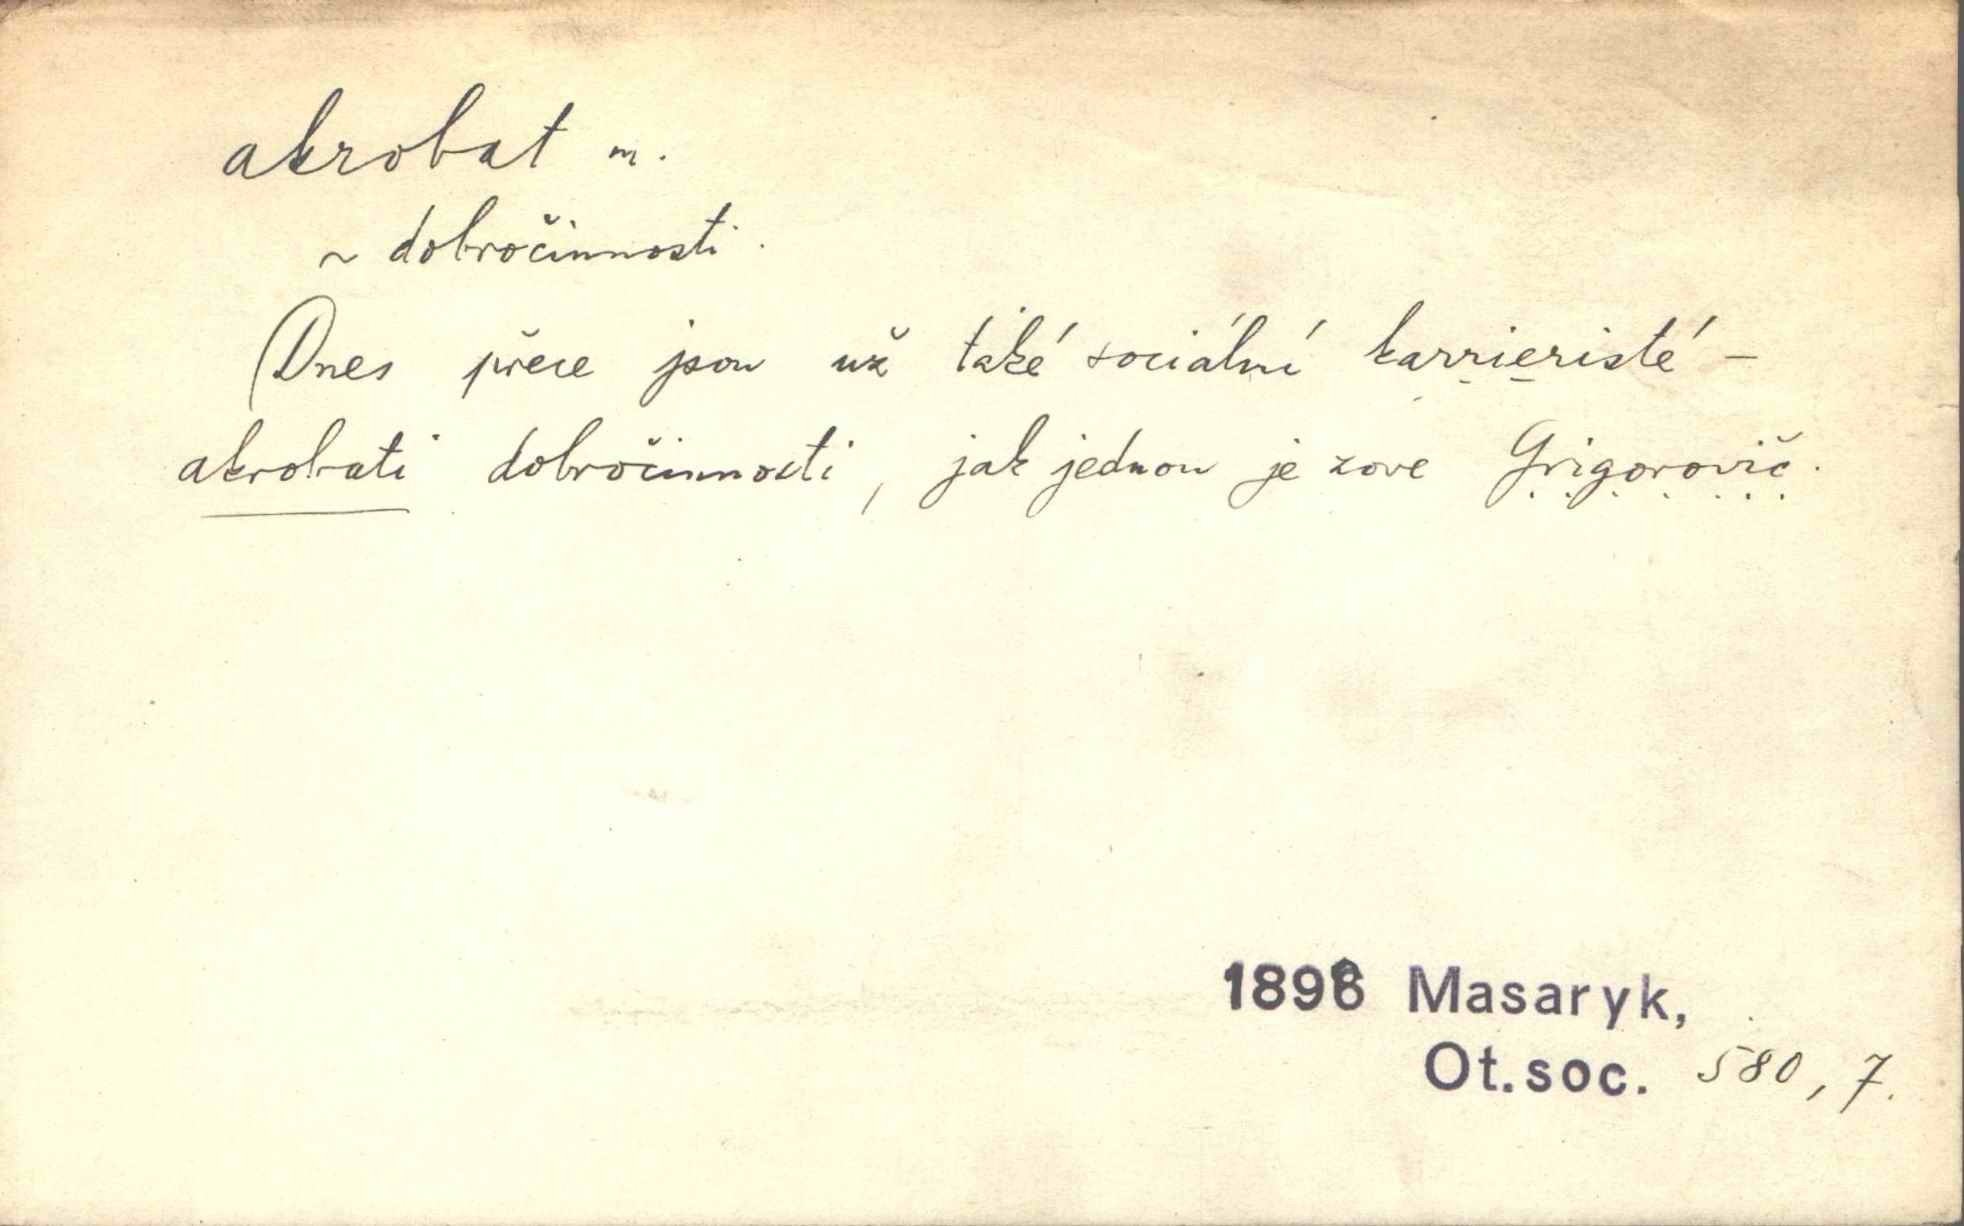 akrobat m.
~ dobročinnosti.
Dnes přece jsou už také sociální karrieristé –
akrobati dobročinnosti, jak jednou je zove Grigorovič.
1898 Masaryk,
Ot.soc. 580, 7.